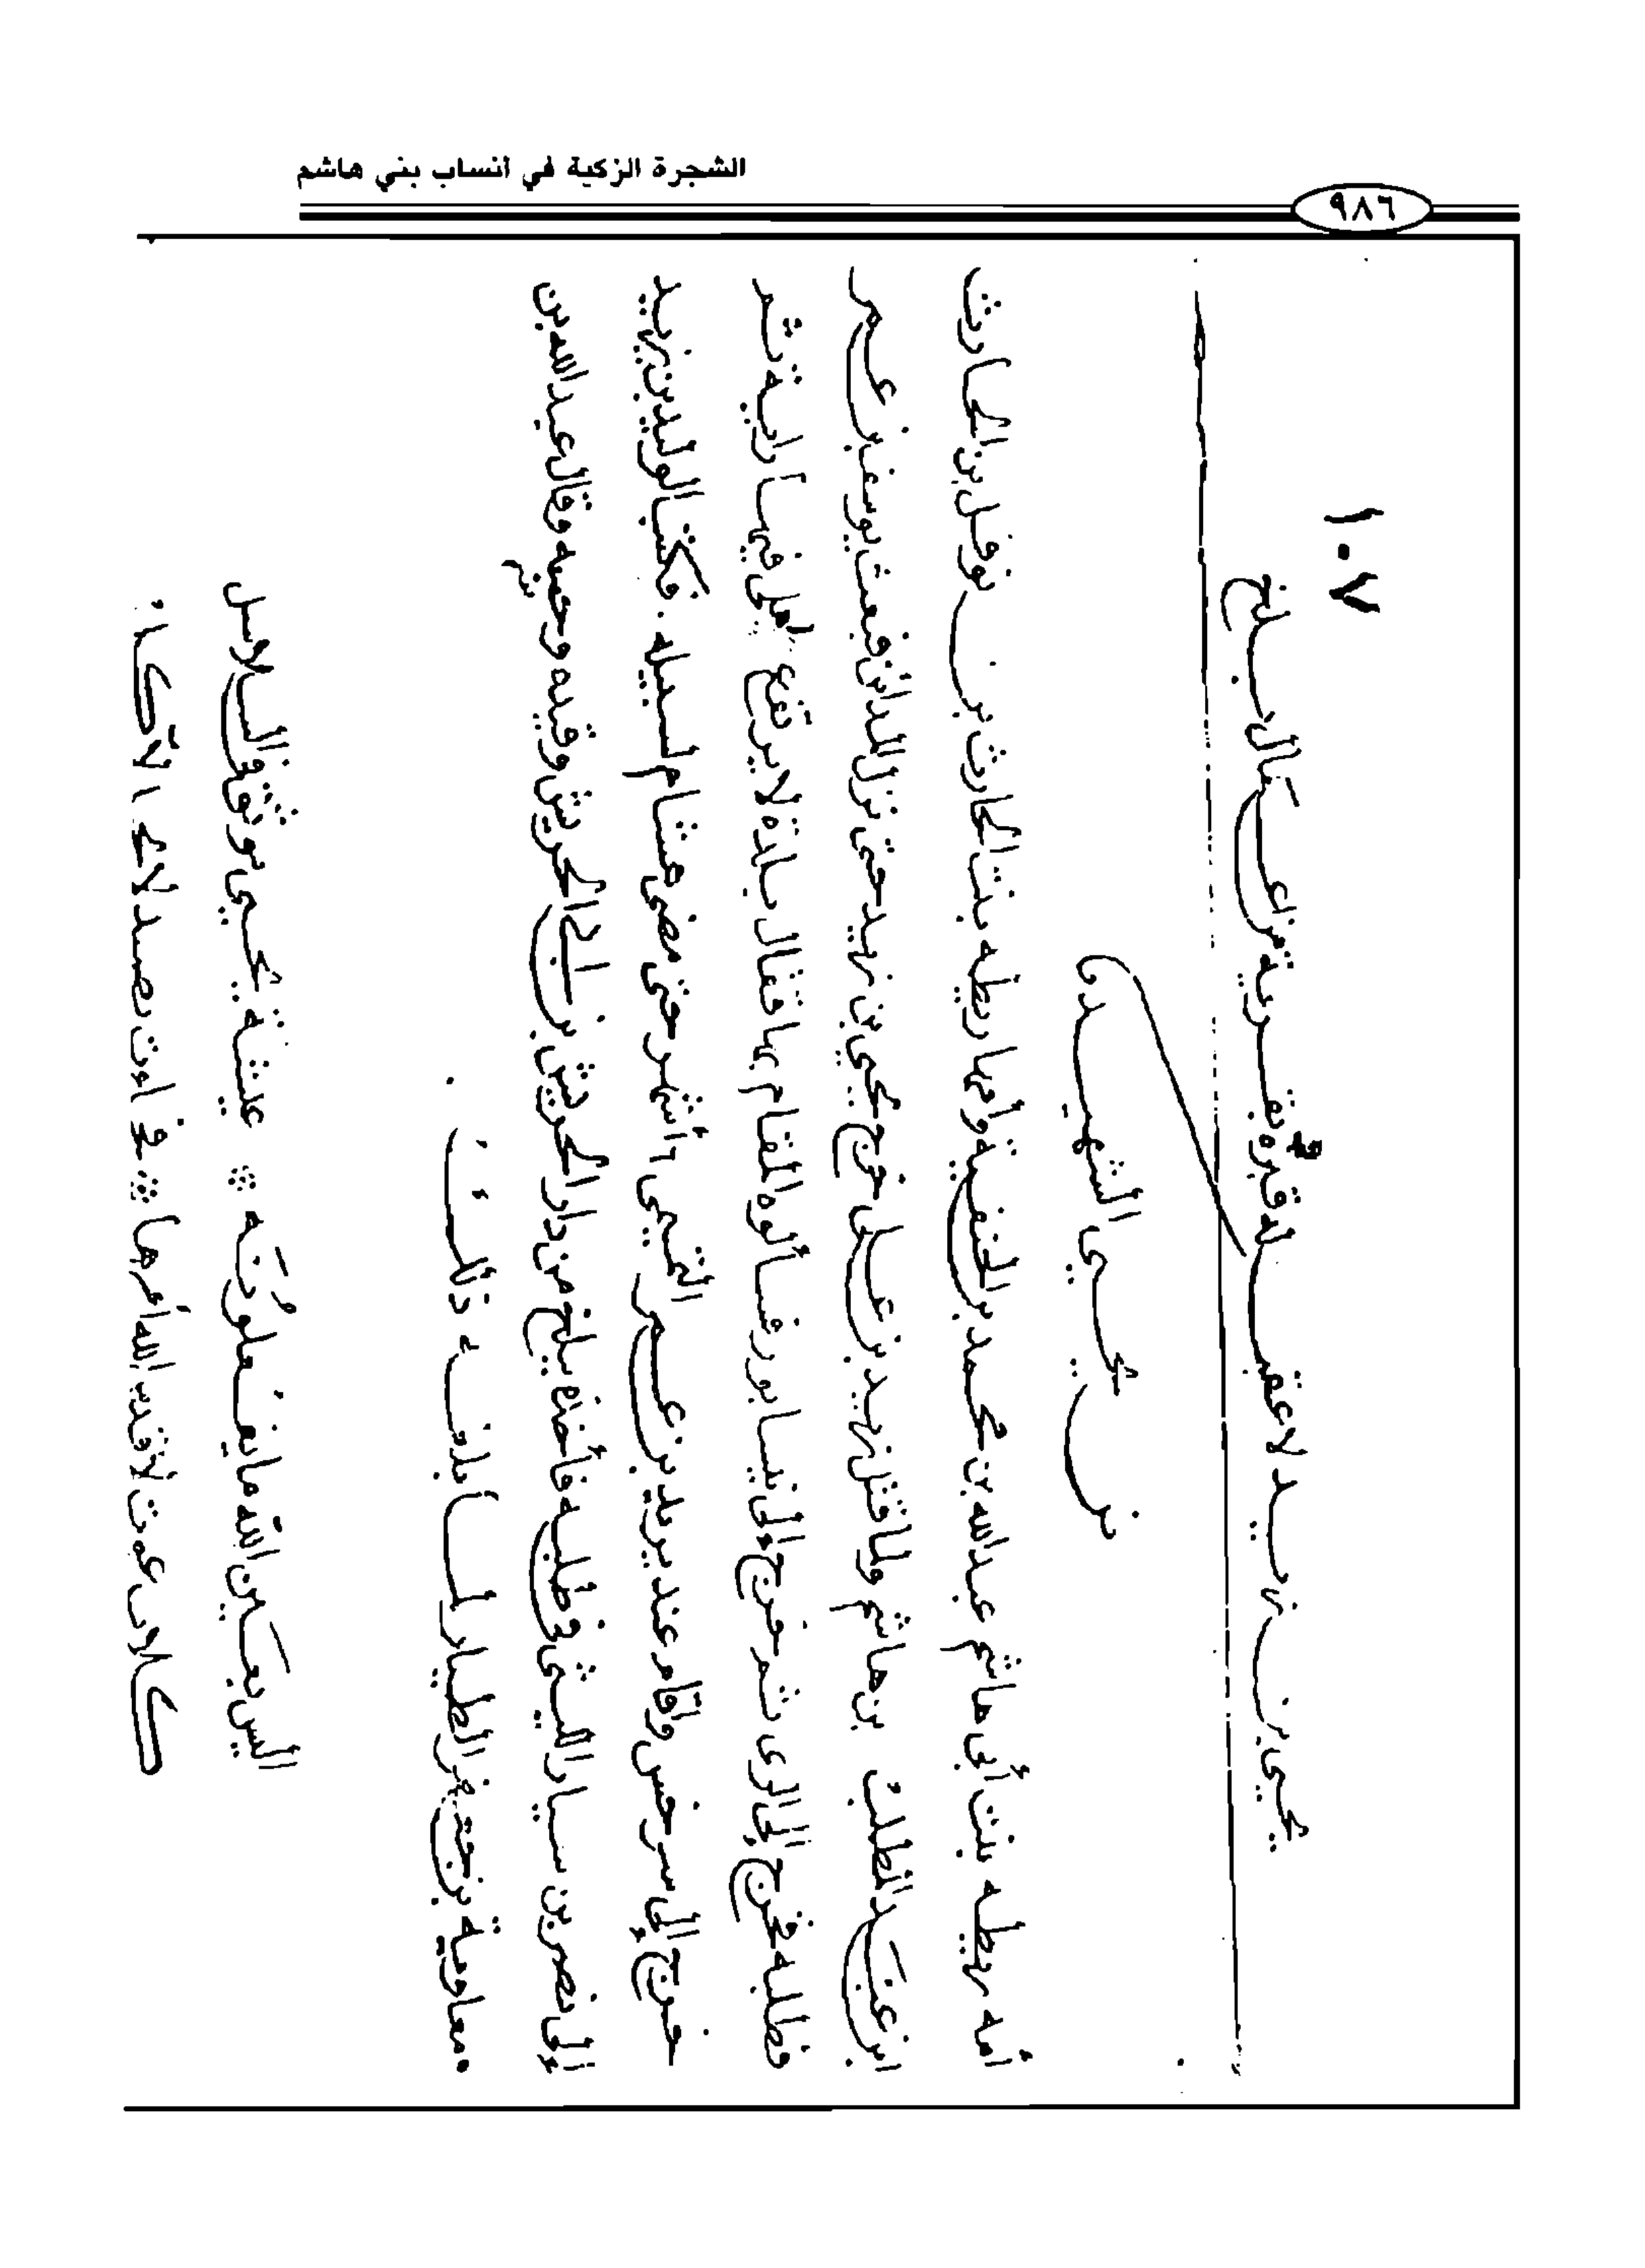 الشجرة الزكية في أنساب بني هاشم
٩٨٦
١٠٧
يحيى بن زيد لا عقب له قبره بقرية من أعمال بلخ
بن يحيى الشهيدى
أمه ريطه بنت أبى هاشم عبد الله بن محمد بن الحنفية وأمها ريطه بنت الحارث بن نوفل بن الحارث
ابن عبد المطلب بن هاشم ولما قتل زيد بن على خرج يحيى بن زيد حتى نزل المدائن فبعث يوسف بن عمر
فطلبه فخرج إلى الرى ثم خرج إلى نيسابور فسألوه المقام بها فقال بلدة لا يرتفع فيها راية ثم
خرج إلى سرخس وأقام عند يزيد بن عمر التيمى أشهر حتى مضى هشام لسبيله. فكتب الوليد بن يزيد
إلى نصر بن سيار الليثى فى طلبه فأخذه ببلخ من دار الحريش بن أبى الحريش وقيده وحبسه وقال عبد الله بن
معاوية بن جعفر الطيار لما بلغه ذلك
أليس بعين الله ما يفعلونه * عشية يحيى موثق فى السلاسل
كلاب عوت لا قدس الله أمرها *